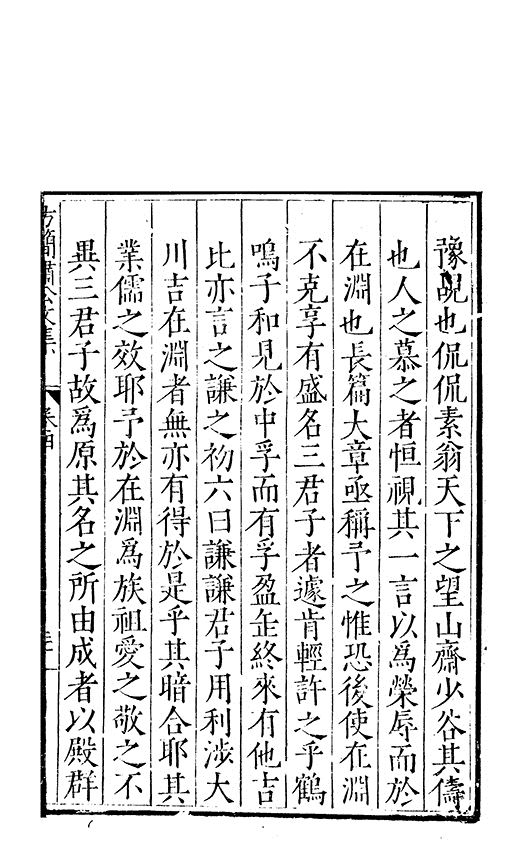 豫說也侃侃素翁天下之望山齋少谷其儔
也人之慕之者恒視其一言以為榮辱而於
在淵也長篇大章亟稱予之惟恐後使在淵
不克享有盛名三君子者遽肯輕許之乎鶴
鳴子和見於中孚而有孚盈缶終來有他吉
比亦言之謙之初六曰謙謙君子用利涉大
川吉在淵者無亦有得於是乎其暗合耶其
業儒之效耶予於在淵為族祖愛之敬之不
異三君子故為原其名之所由成者以殿群
方簡肅公文集 卷四